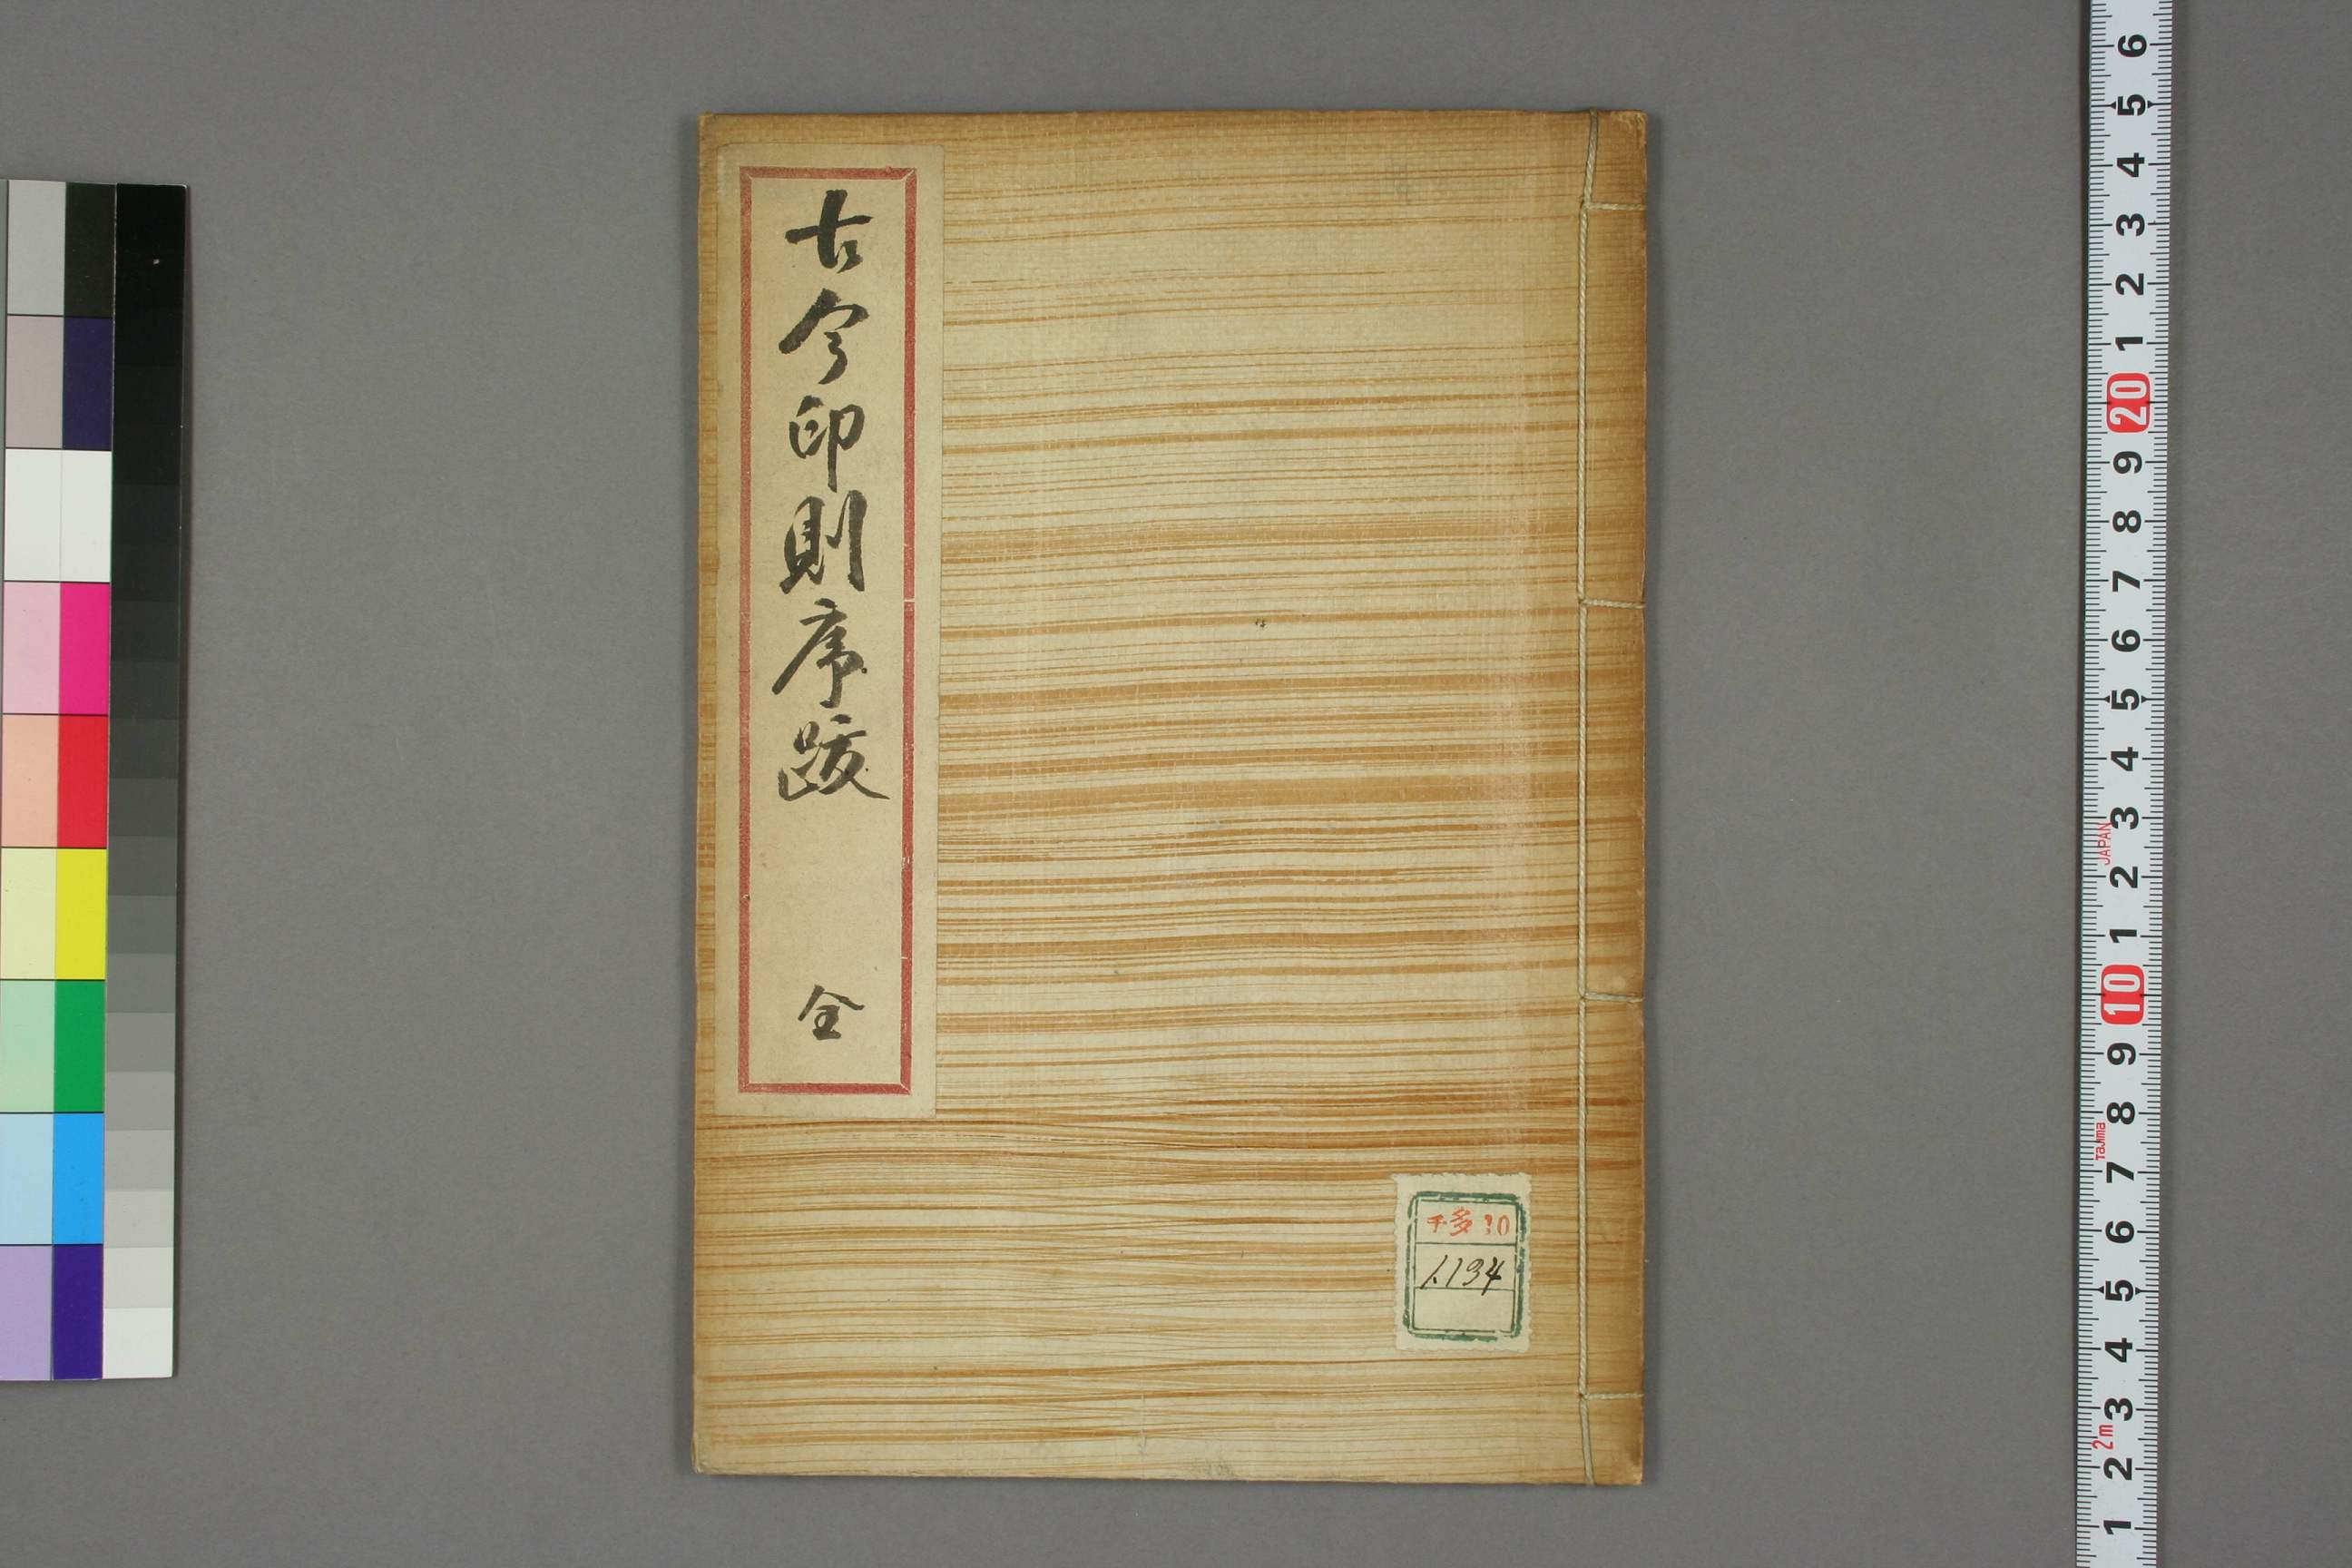 古今印則序跋
全
チ多10
1.134
6 5 4 3 2 1 20 9 8 7 6 5 4 3 2 1 10 9 8 7 6 5 4 3 2 1
JAPAN
Tajima
2m